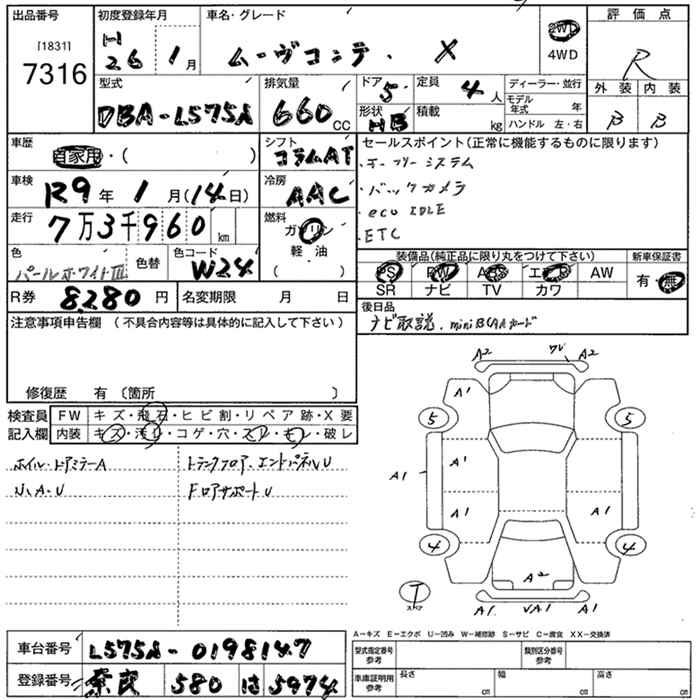 出品番号
[1831]
7316
初度登録年月
H
26 1月
車名・グレード
ムーヴコンテ . X
2WD
4WD
評価点
R
外装 内装
B B
型式
DBA-L575A
排気量
660cc
ドア
5
形状
HB
定員
4人
積載
kg
ディーラー・並行
モデル年式 年
ハンドル 左・右
車歴
自家用・( )
シフト
コラムAT
車検
R9年1月(14日)
冷房
AAC
走行
7万3千960km
燃料
ガソリン
軽油
( )
色
パールホワイトⅢ
色替
色コード
W24
R券 8280円
名変期限 月 日
セールスポイント(正常に機能するものに限ります)
・キーフリーシステム
・バックカメラ
・eco IDLE
・ETC
装備品(純正品に限り丸をつけて下さい)
PS PW ABS エアB AW
SR ナビ TV カワ
新車保証書
有・無
後日品
ナビ取説、miniBCASカード
注意事項申告欄(不具合内容等は具体的に記入して下さい)
修復歴 有〔箇所 〕
検査員
記入欄
FW キズ・飛石・ヒビ割・リペア跡・X要
内装 キズ・汚レ・コゲ・穴・スレ・キレ・破レ
ホイル・ドアミラーA
トランクフロア、エンドパネルU
U、A・U
Fロアサポート U
A2 ワレ A2
A1 A1
5 5
A1
A1
A1 A1
4 4
A2
T
スペア
A1 VA1 A1
A−キズ E−エクボ U−凹み W−補修跡 S−サビ C−腐食 XX−交換済
車台番号 L575A-0198147
登録番号 奈良 580 は 5974
型式指定番号
参考
類別区分番号
参考
車庫証明用
参考
長さ cm
幅 cm
高さ cm